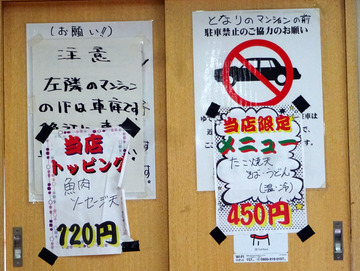 (お願い!!)
注意
左隣のマンション
の1Fは車庫です
当店
トッピング
魚肉
ソーセージ天
120円
となりのマンションの前
駐車禁止のご協力のお願い
当店限定
メニュー
たこ焼天
そば・うどん
(温・冷)
450円